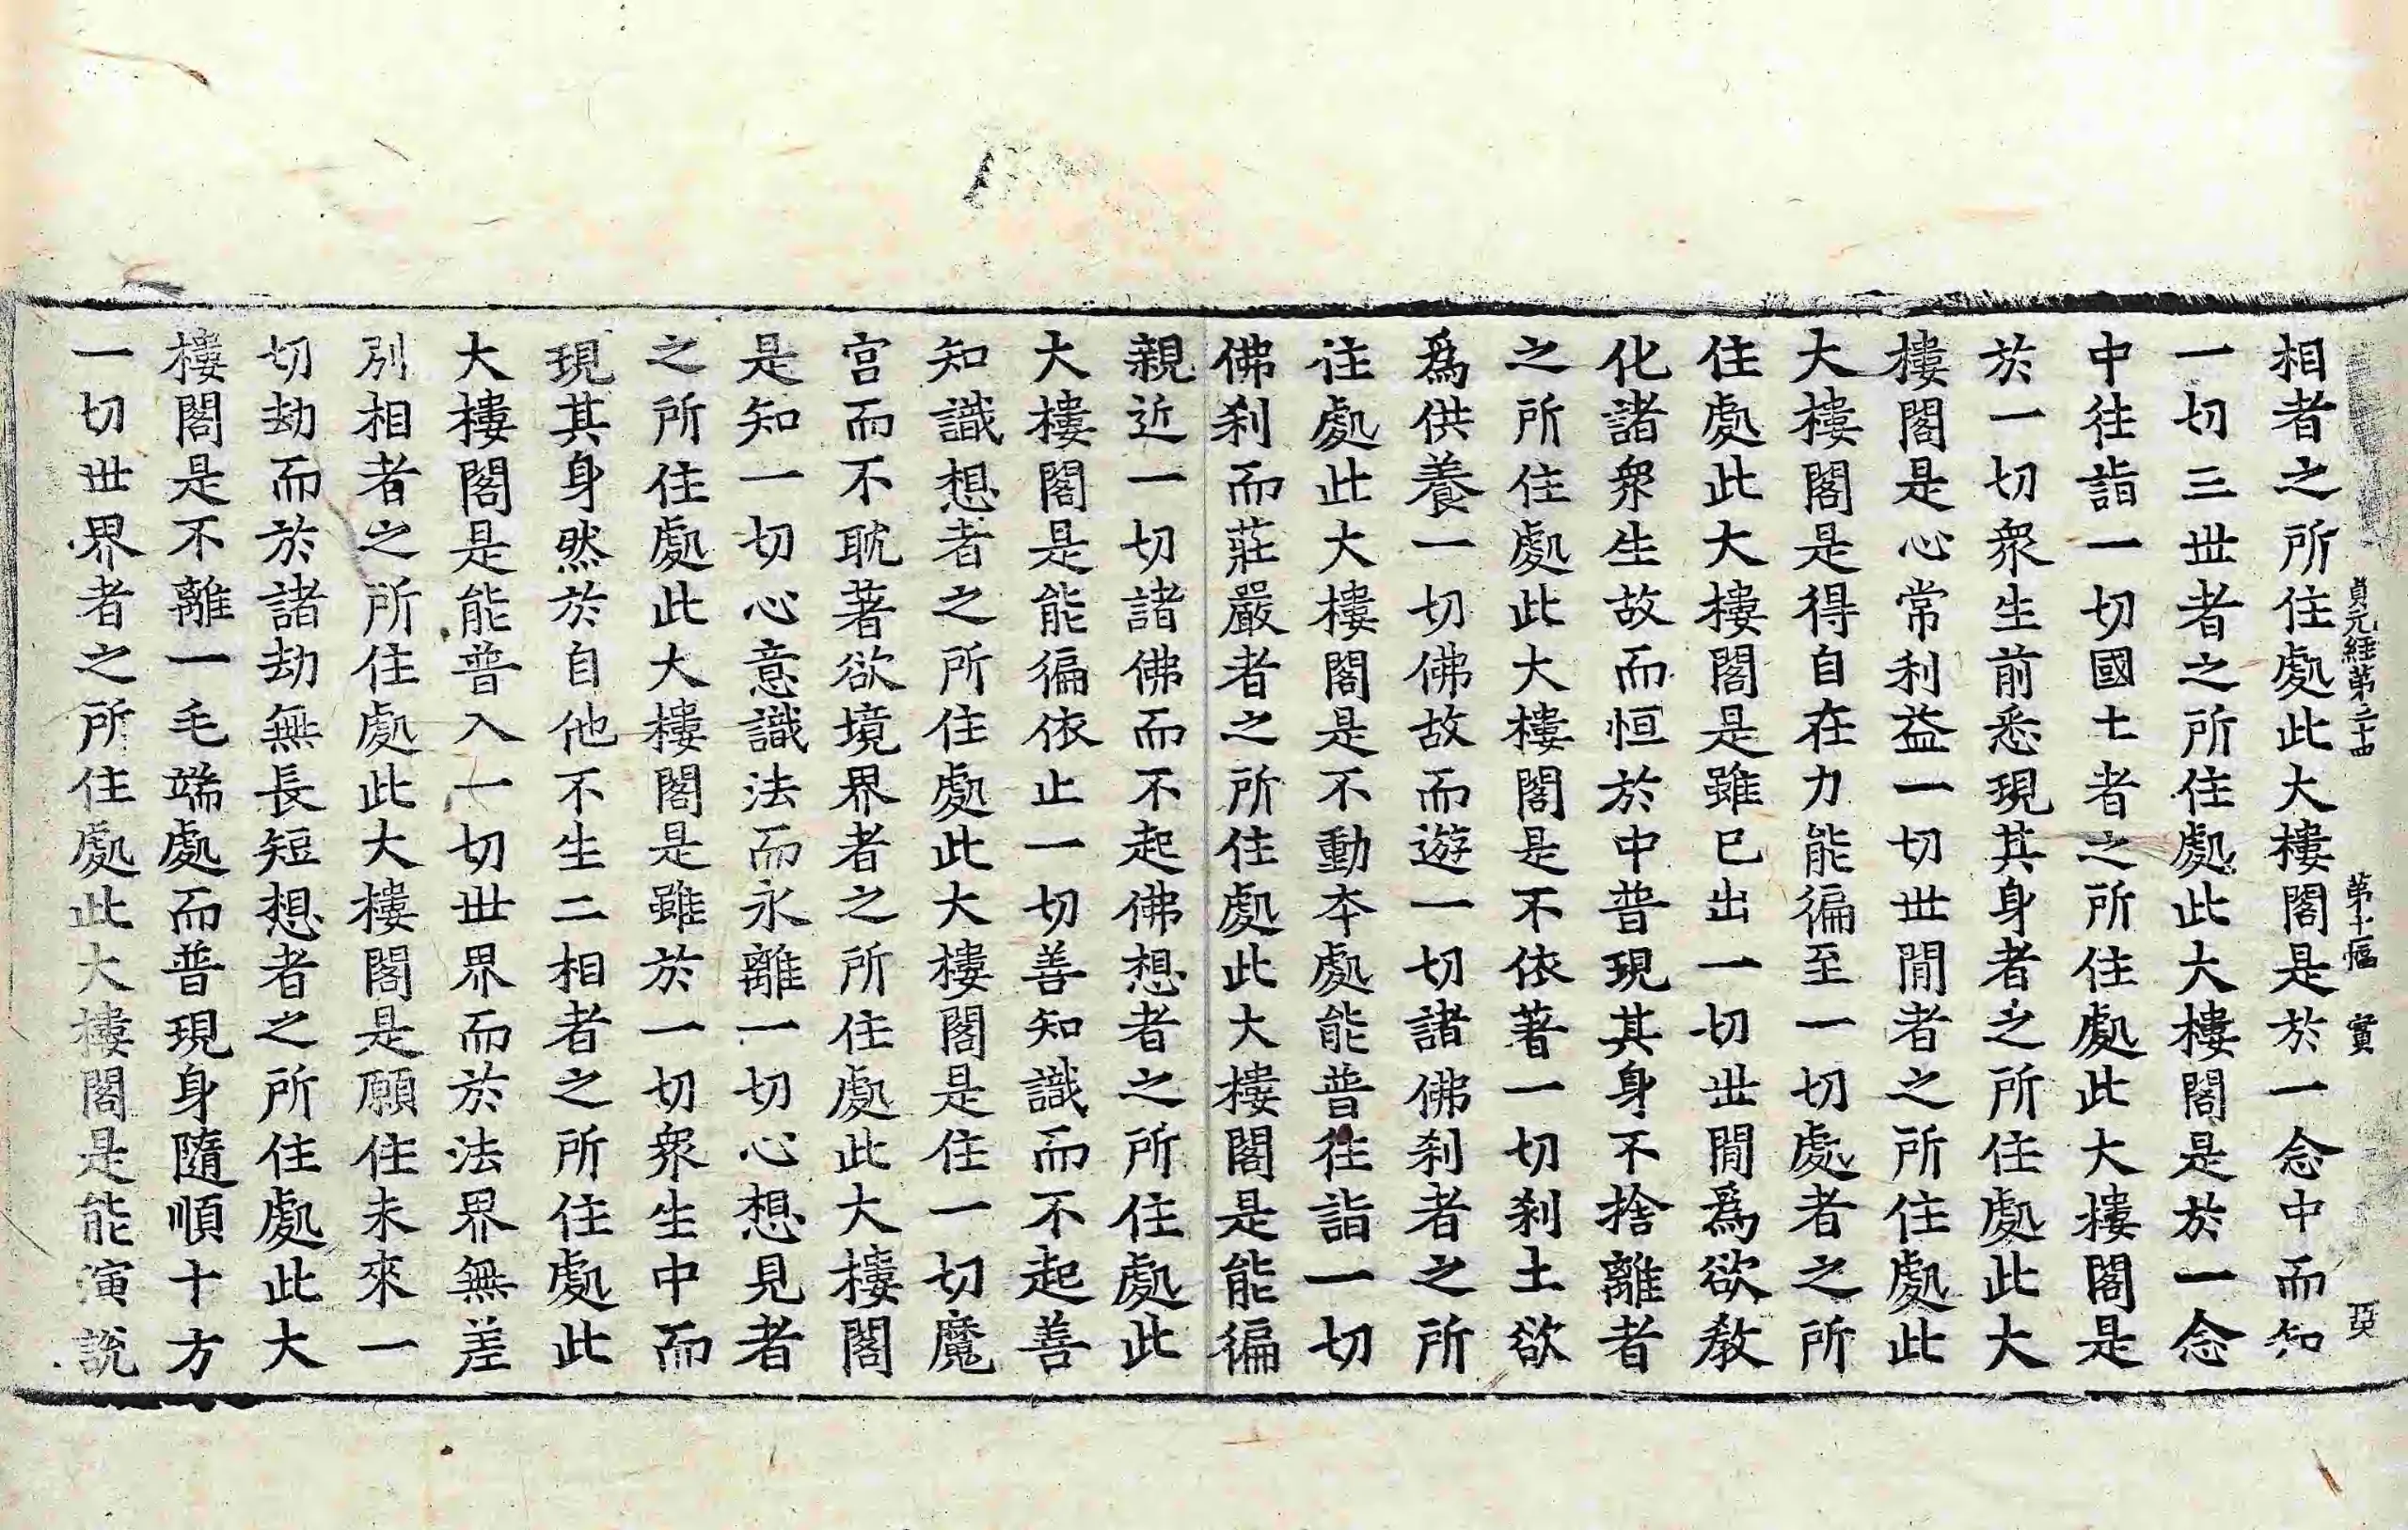 貞元經第三十四　第十二幅　實
相者之所住處此大樓閣是於一念中而知
一切三世者之所住處此大樓閣是於一念
中往詣一切國土者之所住處此大樓閣是
於一切衆生前悉現其身者之所住處此大
樓閣是心常利益一切世閒者之所住處此
大樓閣是得自在力能徧至一切處者之所
住處此大樓閣是雖已出一切世閒爲欲教
化諸衆生故而恒於中普現其身不捨離者
之所住處此大樓閣是不依著一切刹土欲
爲供養一切佛故而遊一切諸佛刹者之所
住處此大樓閣是不動本處能普往詣一切
佛刹而莊嚴者之所住處此大樓閣是能徧
親近一切諸佛而不起佛想者之所住處此
大樓閣是能徧依止一切善知識而不起善
知識想者之所住處此大樓閣是住一切魔
宮而不耽著欲境界者之所住處此大樓閣
是知一切心意識法而永離一切心想見者
之所住處此大樓閣是雖於一切衆生中而
現其身然於自他不生二相者之所住處此
大樓閣是能普入一切世界而於法界無差
別相者之所住處此大樓閣是願住未來一
切劫而於諸劫無長短想者之所住處此大
樓閣是不離一毛端處而普現身隨順十方
一切世界者之所住處此大樓閣是能演說